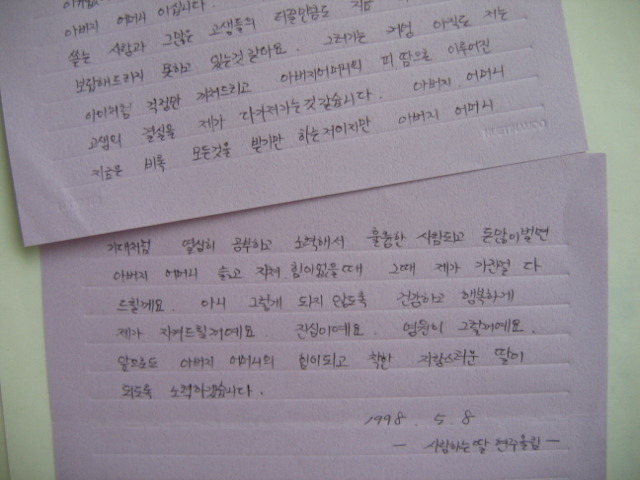 아버지 어머니 이십니다.
쏟는 사랑과 그많은 고생들의 티끌만큼도 지금
보답해드리지 못하고 있는것 같아요. 그러기는 커녕 아직도 저는
아이처럼 걱정만 끼쳐드리고 아버지어머니의 피 땀으로 이루어진
고생의 결실을 제가 다가져가는것 같습니다. 아버지. 어머니
지금은 비록 모든것을 받기만 하는 저이지만 아버지 어머니
기대처럼 열심히 공부하고 노력해서 훌륭한 사람되고 돈많이벌면
아버지 어머니 늙고 지쳐 힘이없을때 그때 제가 가진걸 다
드릴께요. 아니 그렇게 되지 않도록 건강하고 행복하게
제가 지켜드릴꺼예요. 진심이예요. 영원히 그럴꺼예요.
앞으로도 아버지 어머니의 힘이되고 착한 자랑스러운 딸이
되도록 노력하겠습니다.
1998. 5. 8
— 사랑하는 딸 현주올림 —